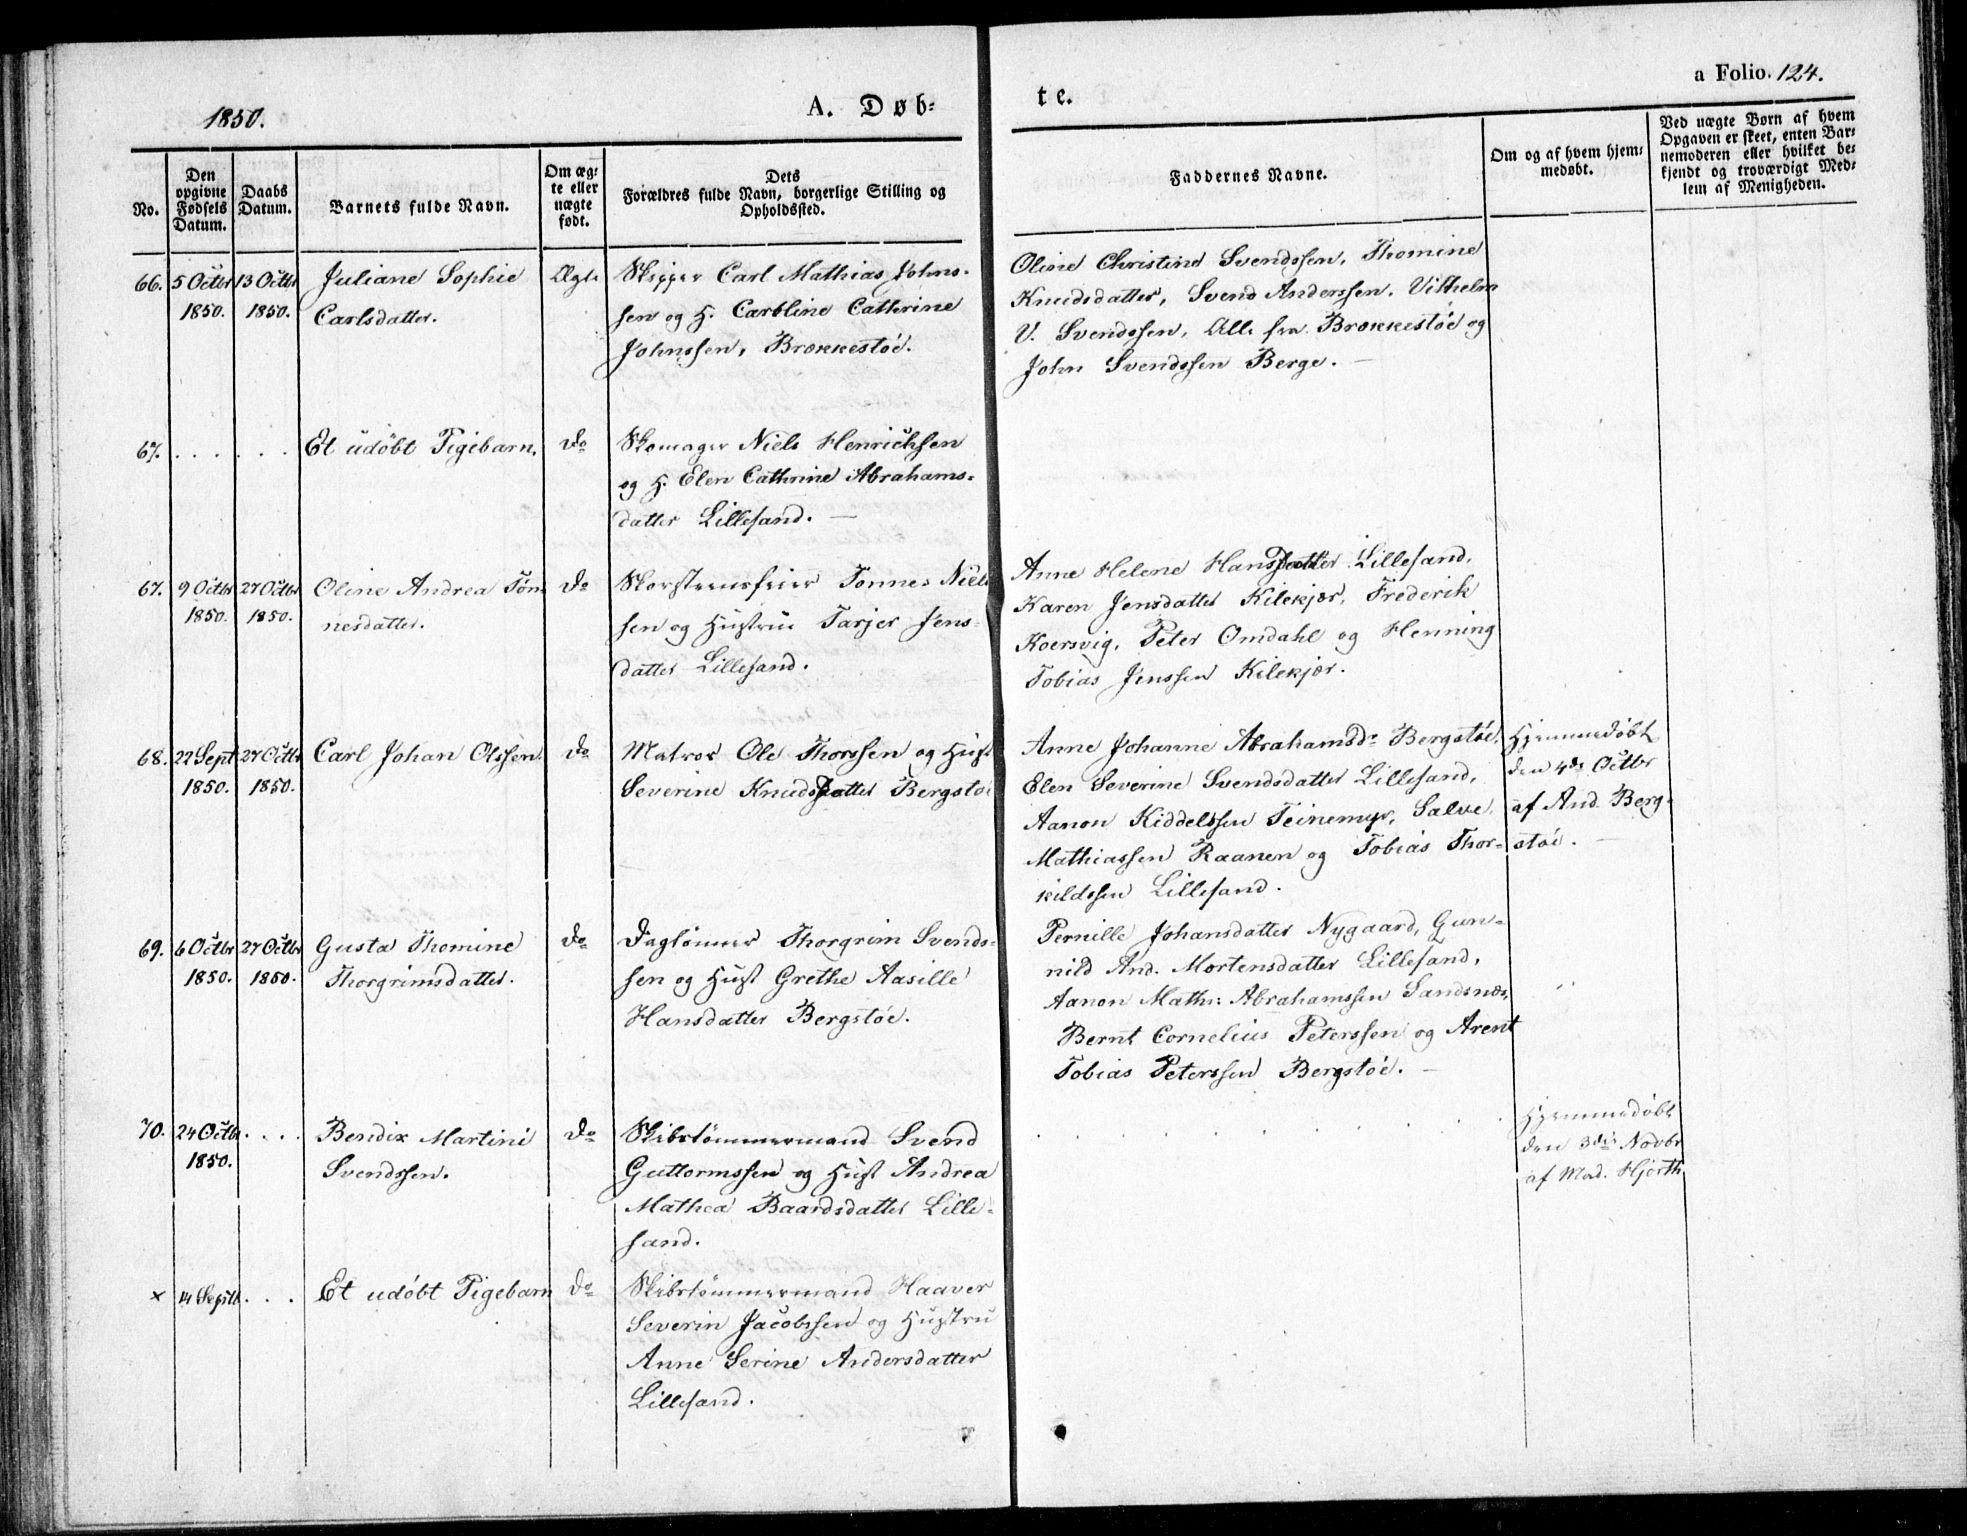 1850.
A. Døb-
te.
a Folio. 124.
No.
Den
opgivne
Fødsels
Datum.
Daabs
Datum.
Barnets fulde Navn.
Om æg-
te eller
uægte
født.
Dets
Forældres fulde Navn, borgerlige Stilling og
Opholdssted.
Faddernes Navne.
Om og af hvem hjem-
medøbt.
Ved uægte Børn af hvem
Opgaven er skeet, enten Bar-
nemoderen eller hvilket be-
kjendt og troværdigt Med-
lem af Menigheden.
66.
5 Octbr
1850.
13 Octbr
1850.
Juliane Sophie
Carlsdatter.
Ægte
Skipper Carl Mathias Johns-
sen og H. Carbline Cathrine
Johnssen, Brekkestöe.
Oline Christine Svendssen, Thomine
Knudsdatter, Svend Anderssen. Vilhelm
V. Svendssen, Alle fra Brekkestöe og
John Svendssen Berge. —
67.
. . . . . .
Et udöbt Pigebarn.
Do
Skomager Niels Henrichsen
og H. Elen Cathrine Abrahams-
datter Lillesand. —
67.
9 Octbr
1850.
27 Octbr
1850.
Oline Andrea Tön-
nesdatter.
Do
Skorsteensfeier Tönnes Niels
sen og Hustrue Tarjer Jens-
datter Lillesand.
Anne Helene Hansdatter Lillesand,
Karen Jensdatter Kilekjær, Frederik
Koersvig, Peter Omdahl og Henning
Tobias Jenssen Kilekjær.
68.
22 Sept
1850.
27 Octbr
1850.
Carl Johan Olssen.
Do
Matros Ole Thorssen og Hust
Severine Knudsdatter Bergstöe
Anne Johanne Abrahamsdr Bergstöe,
Elen Severine Svendsdatter Lillesand,
Aanon Kiddelssen Teinemyr, Salve
Mathiassen Raanen og Tobias Thor-
kildssen Lillesand.
Hjemmedöbt
den 4de Octbr
af And. Berg-
stöe. —
69.
6 Octbr
1850.
27 Octbr
1850.
Gusta Thomine
Thorgrimsdatter.
Do
Daglönner Thorgrim Svends-
sen og Hust Grethe Aasille
Hansdatter Bergstöe.
Pernille Johansdatter Nygaard, Gun-
nild And. Mortensdatter Lillesand,
Aanon Maths: Abrahamssen Sandsnæs,
Bernt Cornelius Peterssen og Arent
Tobias Peterssen Bergstöe. —
70.
24 Octbr
1850.
. . . .
Bendix Martini
Svendssen.
Do
Skibstömmermand Svend
Guttormssen og Hust Andrea
Mathea Baardsdatter Lille-
sand.
Hjemmedöbt
den 3die Novbr
af Mad. Hjorth
×
14 Septb
. . .
Et udöbt Pigebarn
Do
Skibstömmermand Haaver
Severin Jacobssen og Hustru
Anne Serine Andersdatter
Lillesand.